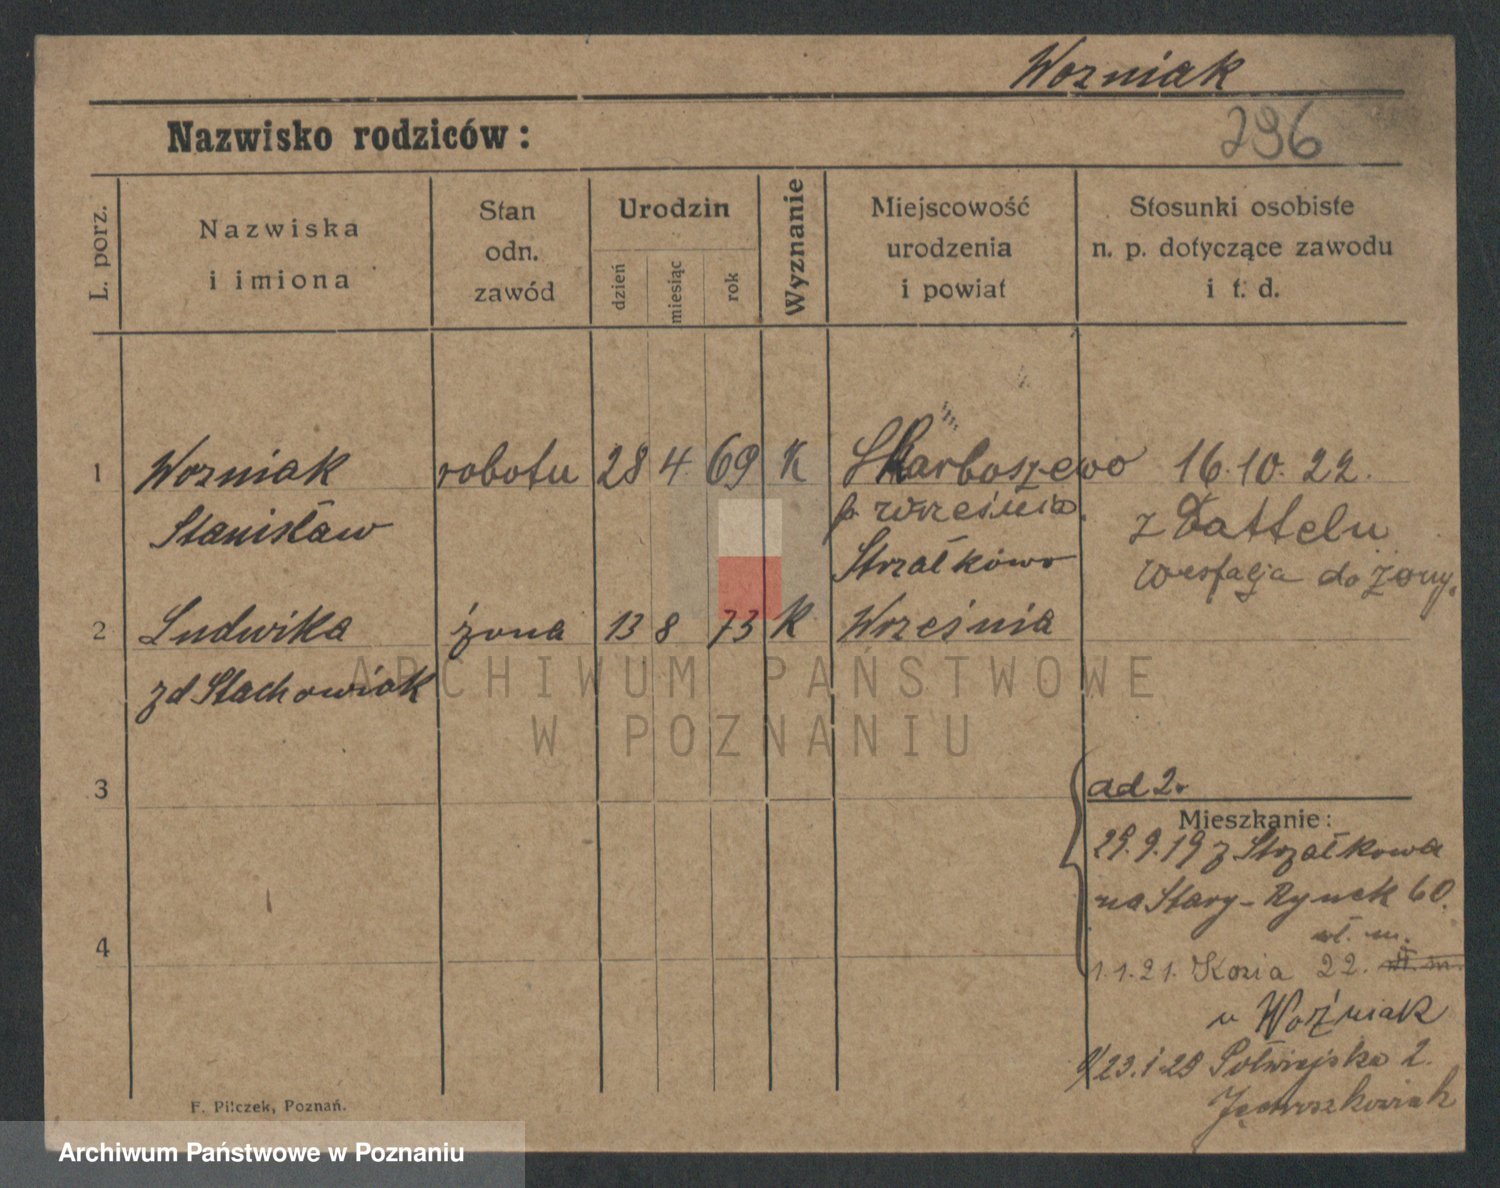 Wozniak
Nazwisko rodziców:
296
L. porz.
Nazwiska
i imiona
Stan
odn.
zawód
Urodzin
dzień
miesiąc
rok
Wyznanie
Miejscowość
urodzenia
i powiat
Stosunki osobiste
n. p. dotyczące zawodu
i t. d.
1 Wozniak robotu 28 4 69 K Skarboszewo 16.10.22.
Stanisław p. Września z Dattelu
Strzałkowo Wesfalja do żony.
2 Ludwika żona 13 8 73 K Września
zd Stachowiak
ARCHIWUM PAŃSTWOWE
W POZNANIU
3
ad 2.
Mieszkanie:
29.9.19 z Strzałkowa
na Stary-Rynek 60.
wł. m.
4
1.1.21. Kozia 22. wł. m.
u Woźniak
1/23.1.23 Półwiejska 2.
F. Pilczek, Poznań.
Archiwum Państwowe w Poznaniu